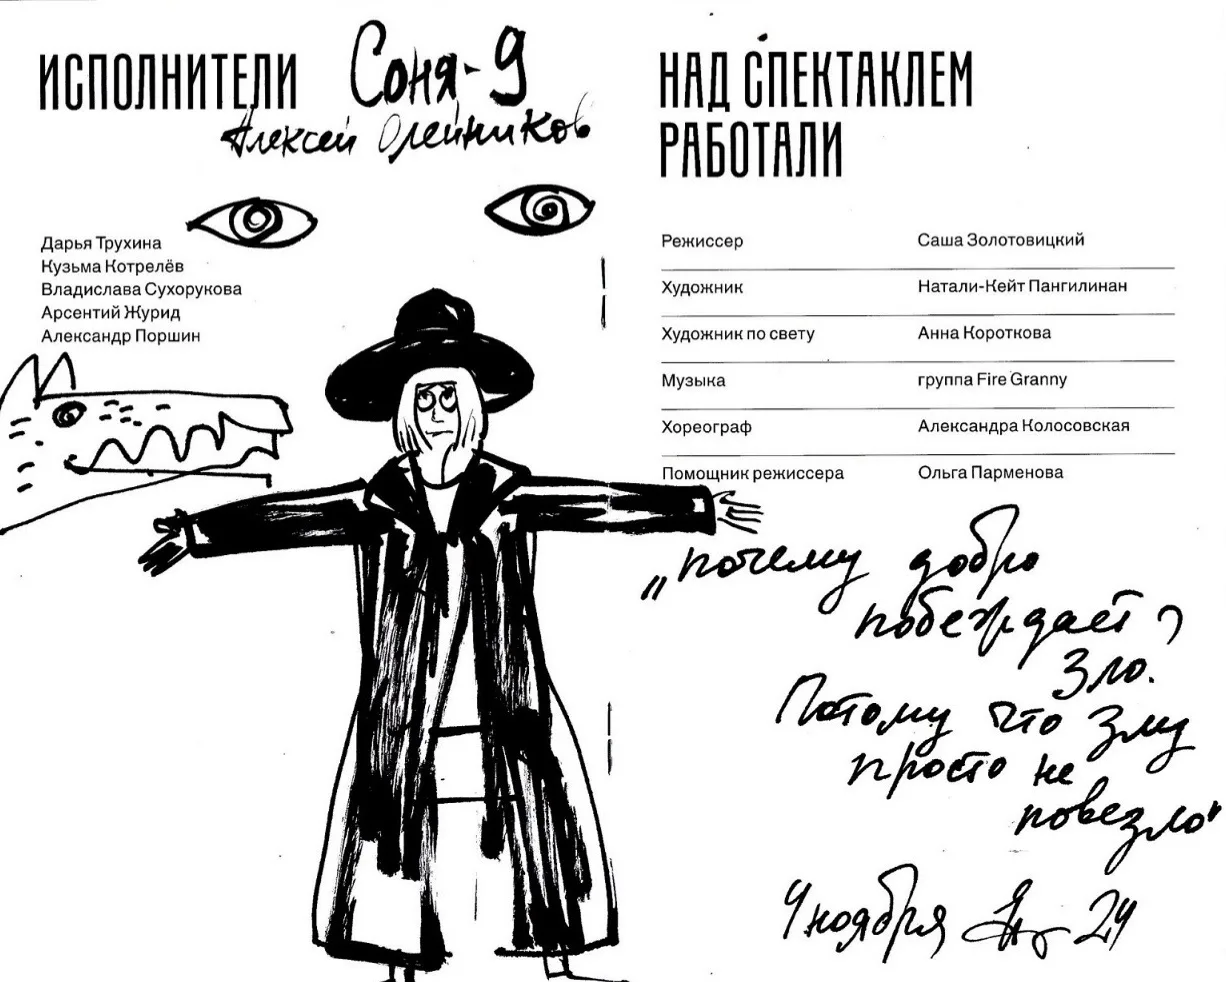 ИСПОЛНИТЕЛИ
Соня-9
Алексей Олейников
Дарья Трухина
Кузьма Котрелёв
Владислава Сухорукова
Арсентий Журид
Александр Поршин
НАД СПЕКТАКЛЕМ
РАБОТАЛИ
Режиссер Саша Золотовицкий
Художник Натали-Кейт Пангилинан
Художник по свету Анна Короткова
Музыка группа Fire Granny
Хореограф Александра Колосовская
Помощник режиссера Ольга Парменова
„почему добро
побеждает ?
зло.
Потому что злу
просто не
повезло"
4 ноября 24